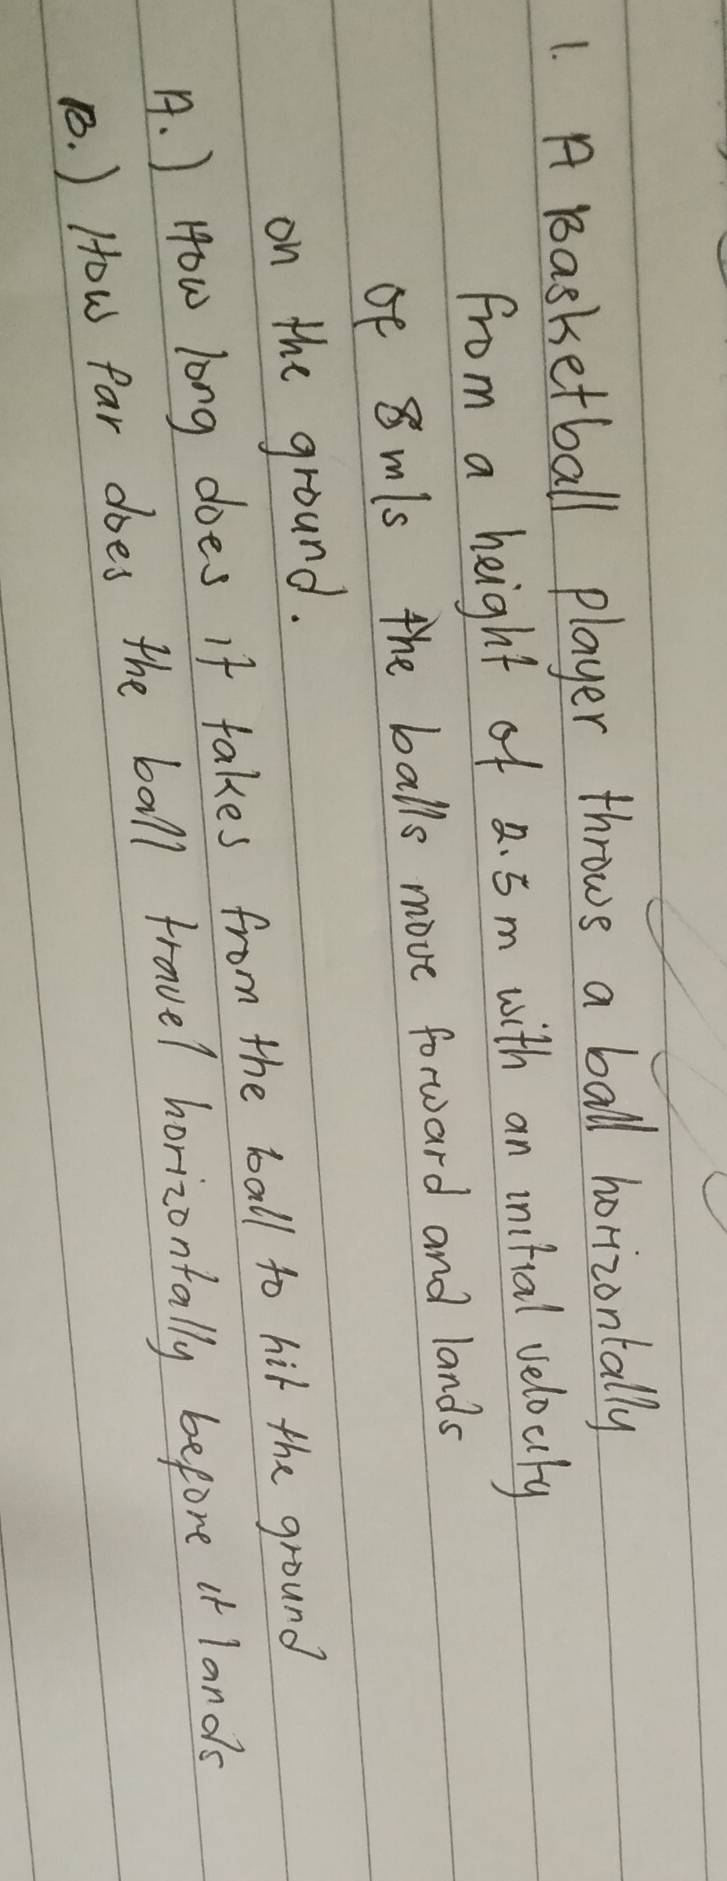 1. A Basketball player throws a ball horizontally
from a height of 2.5 m with an initial velocity
of 8 m/s the balls move forward and lands
on the ground.
A.) How long does it takes from the ball to hit the ground
B.) How far does the ball travel horizontally before it lands